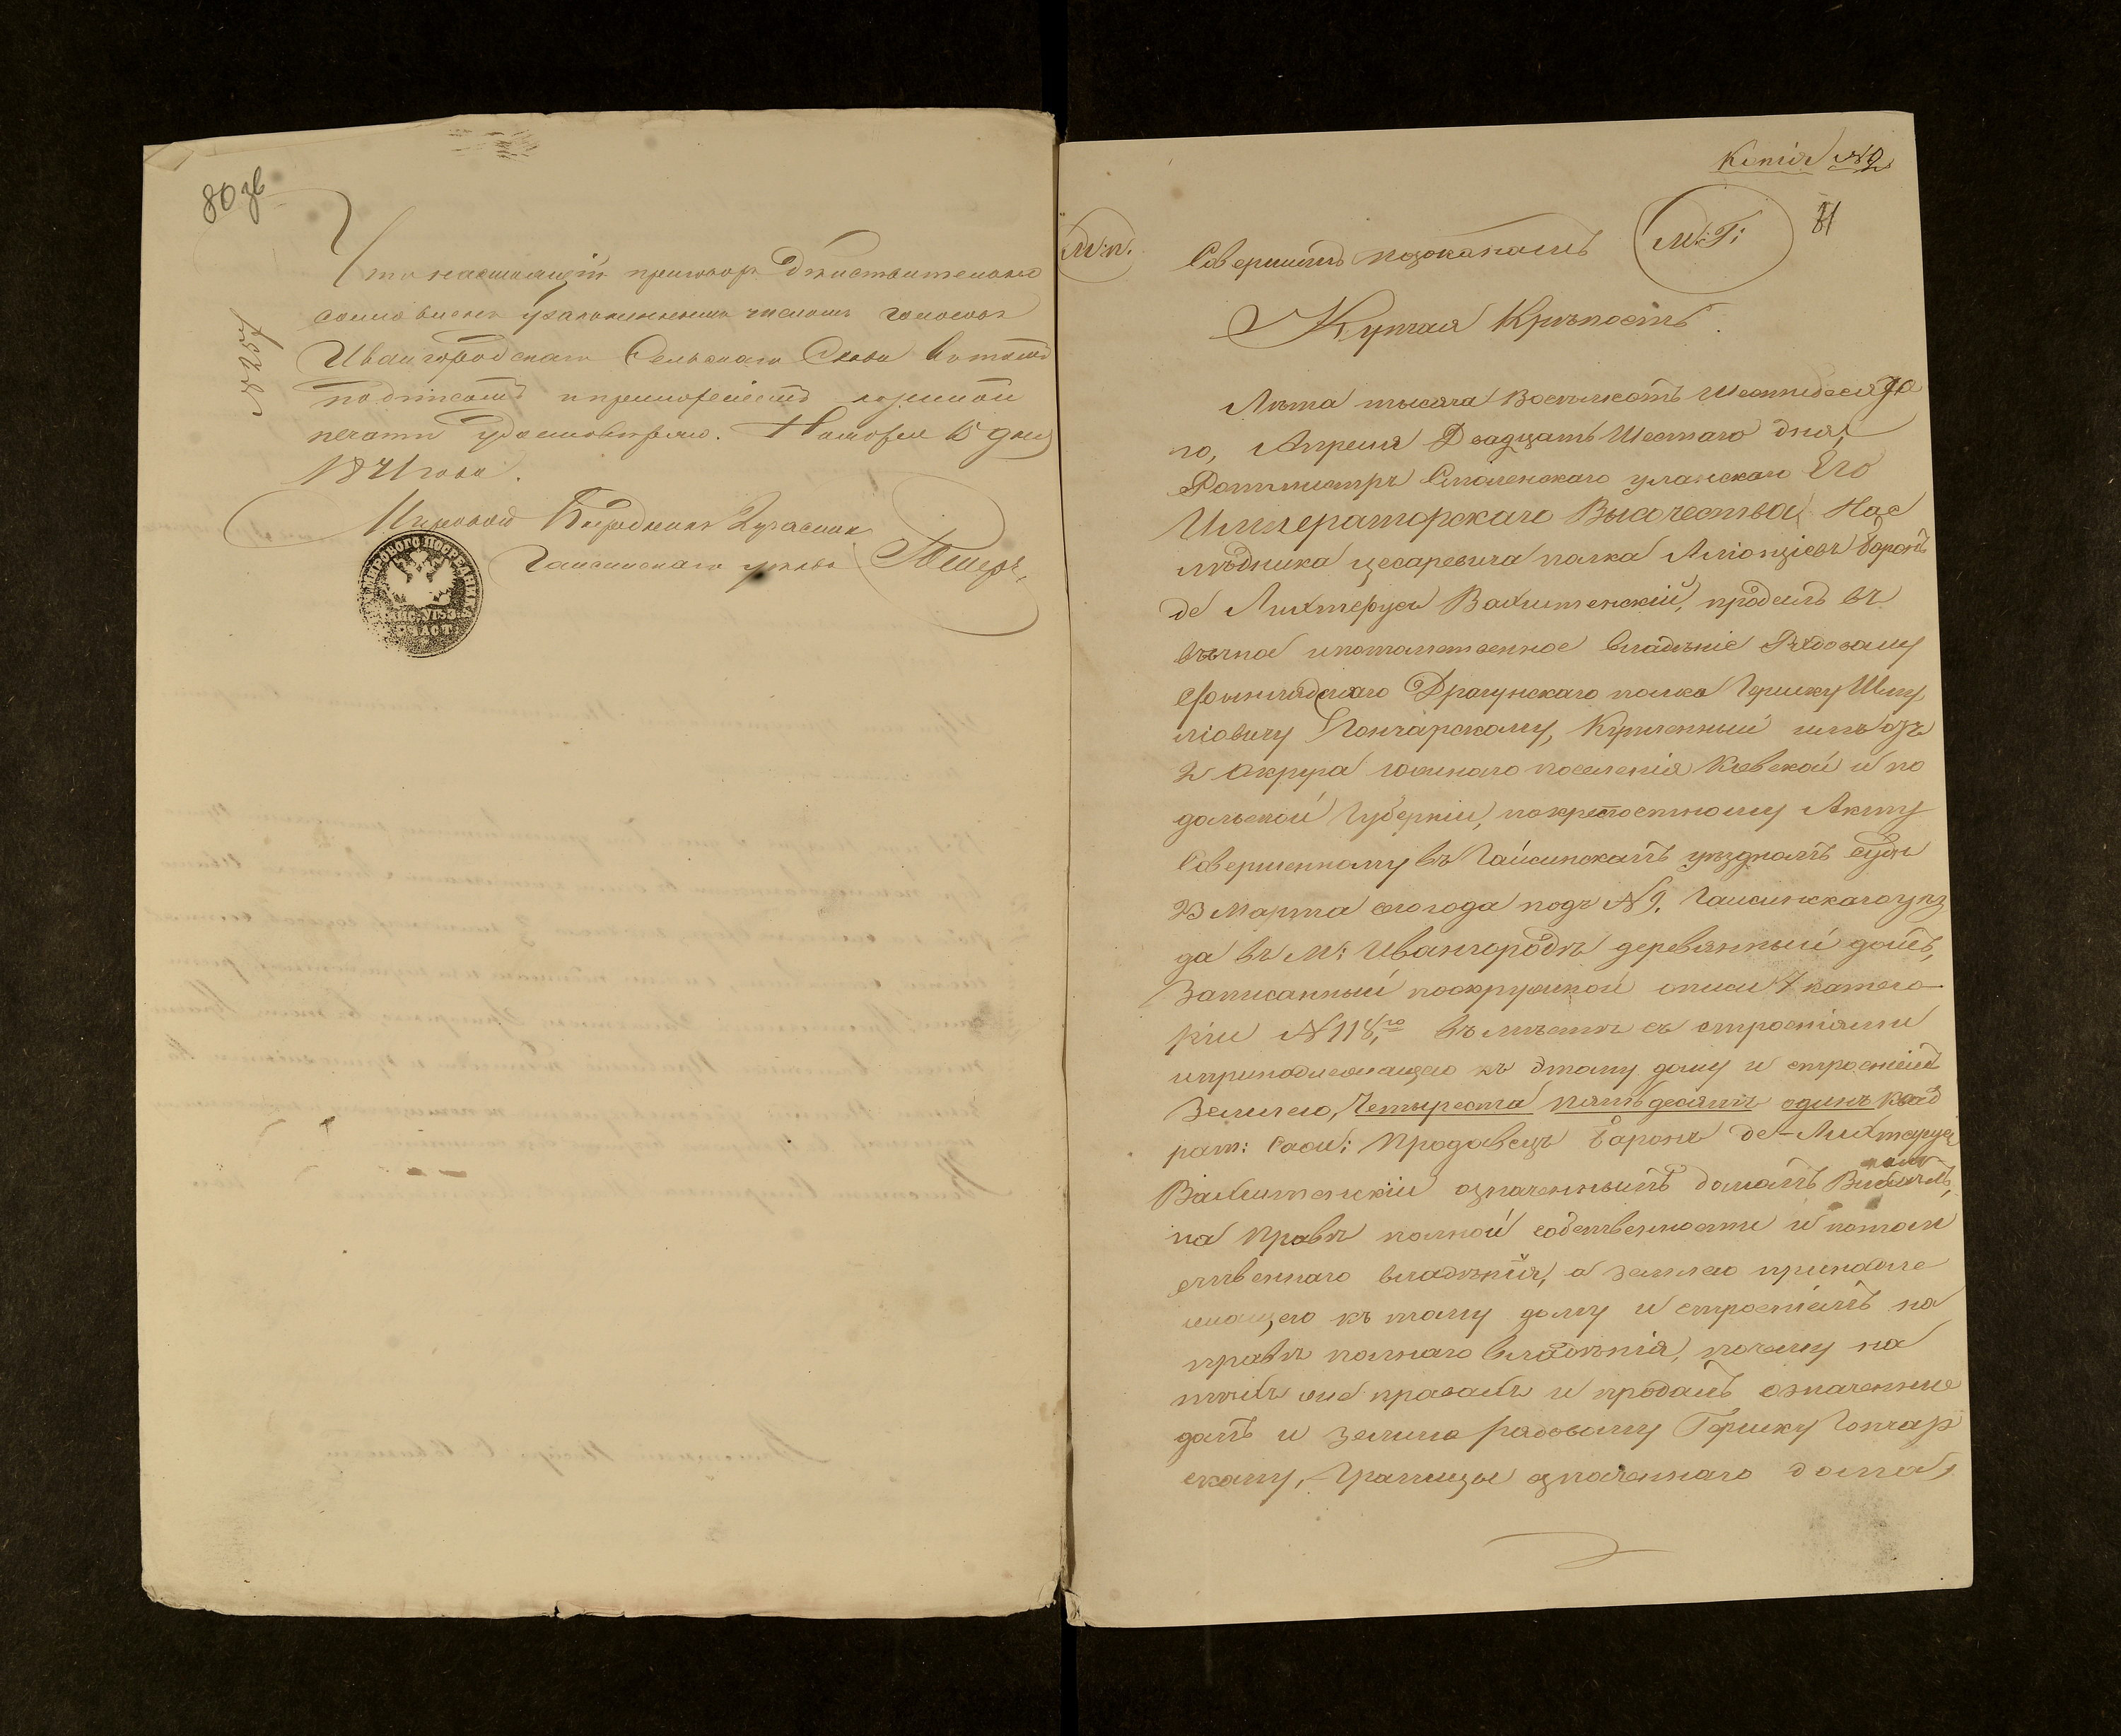 80 зв
Что настоящій приговор дѣйствительно
составленъ узаконеннымъ числомъ голосовъ
Ивангородскаго Сельскаго Схода въ томъ
подписомъ и приложеніемъ казенной
печати удостовѣряю. Ноября 15 дня
1871 года.
Мировой Посредникъ 2 участка
Гайсинскаго уѣзда
МИРОВОГО ПОСРЕДНИКА
УЧАСТ.
№ 257
Копія №2
81
М.П.
Совершить
М: Г:
Купчая Крѣпость.
Лѣта тысяча Восемьсотъ Шестидесята
го, Апреля Двадцать Шестаго дня,
Ротмистръ Смоленскаго уланскаго Его
Императорскаго Высочества Нас
лѣдника цесаревича полка Баронъ
де Вахитенскій, продалъ въ
вѣчное и потомственное владѣніе Рядовому
Финляндскаго Драгунскаго полка Гершку Шму
ліовичу Гончарскому, Купленный имъ изъ
2 Округа военнаго поселенія Кіевской и По
дольской Губерніи, покрепостному Акту
Совершенному въ Гайсинскомъ уѣздномъ Судѣ
23 Марта сего года подъ №9. Гайсинскаго уѣз
да въ М: Ивангородѣ деревянный домъ,
Записанный поокружной описи 4 катего
ріи №118,го въмѣстѣ съ строеніями
ипринадлежащею къ этому дому и строеніямъ
Землею, Четыреста пятьдесятъ одинъ квад
рат: Саж: Продавецъ Баронъ де-
Вахитенскій означеннымъ домомъ
на правѣ полной собственности и потом
ственнаго владѣнія, а землею принадле
жащею къ тому дому и строеніямъ на
правѣ полнаго владѣнія, почему на
тѣхъ же правахъ и продалъ означенные
домъ и землю рядовому Гершку Гончар
скому, Границы означеннаго дома,